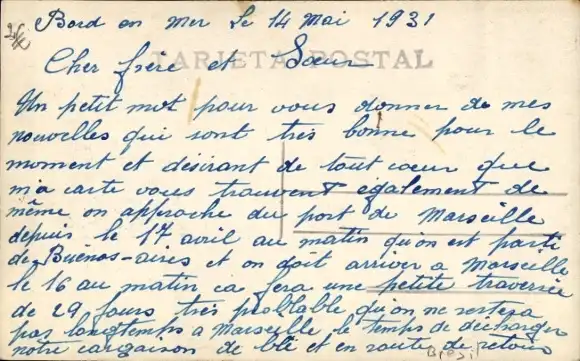 Bord en mer Le 14 Mai 1931
TARJETA POSTAL
Cher frère et Sœur
Un petit mot pour vous donner de mes
nouvelles qui sont très bonne pour le
moment et désirant de tout cœur que
m'a carte vous trauvent également de
même on approche du port de Marseille
depuis le 17 avril au matin qu'on est parti
de Buenos-aires et on doit arriver a Marseille
le 16 au matin ca fera une petite traversée
de 29 Jours très probtable qu'on ne restera
pas longtemps a Marseille le temps de décharger
notre cargaison de blé et en route de retour
Brésil